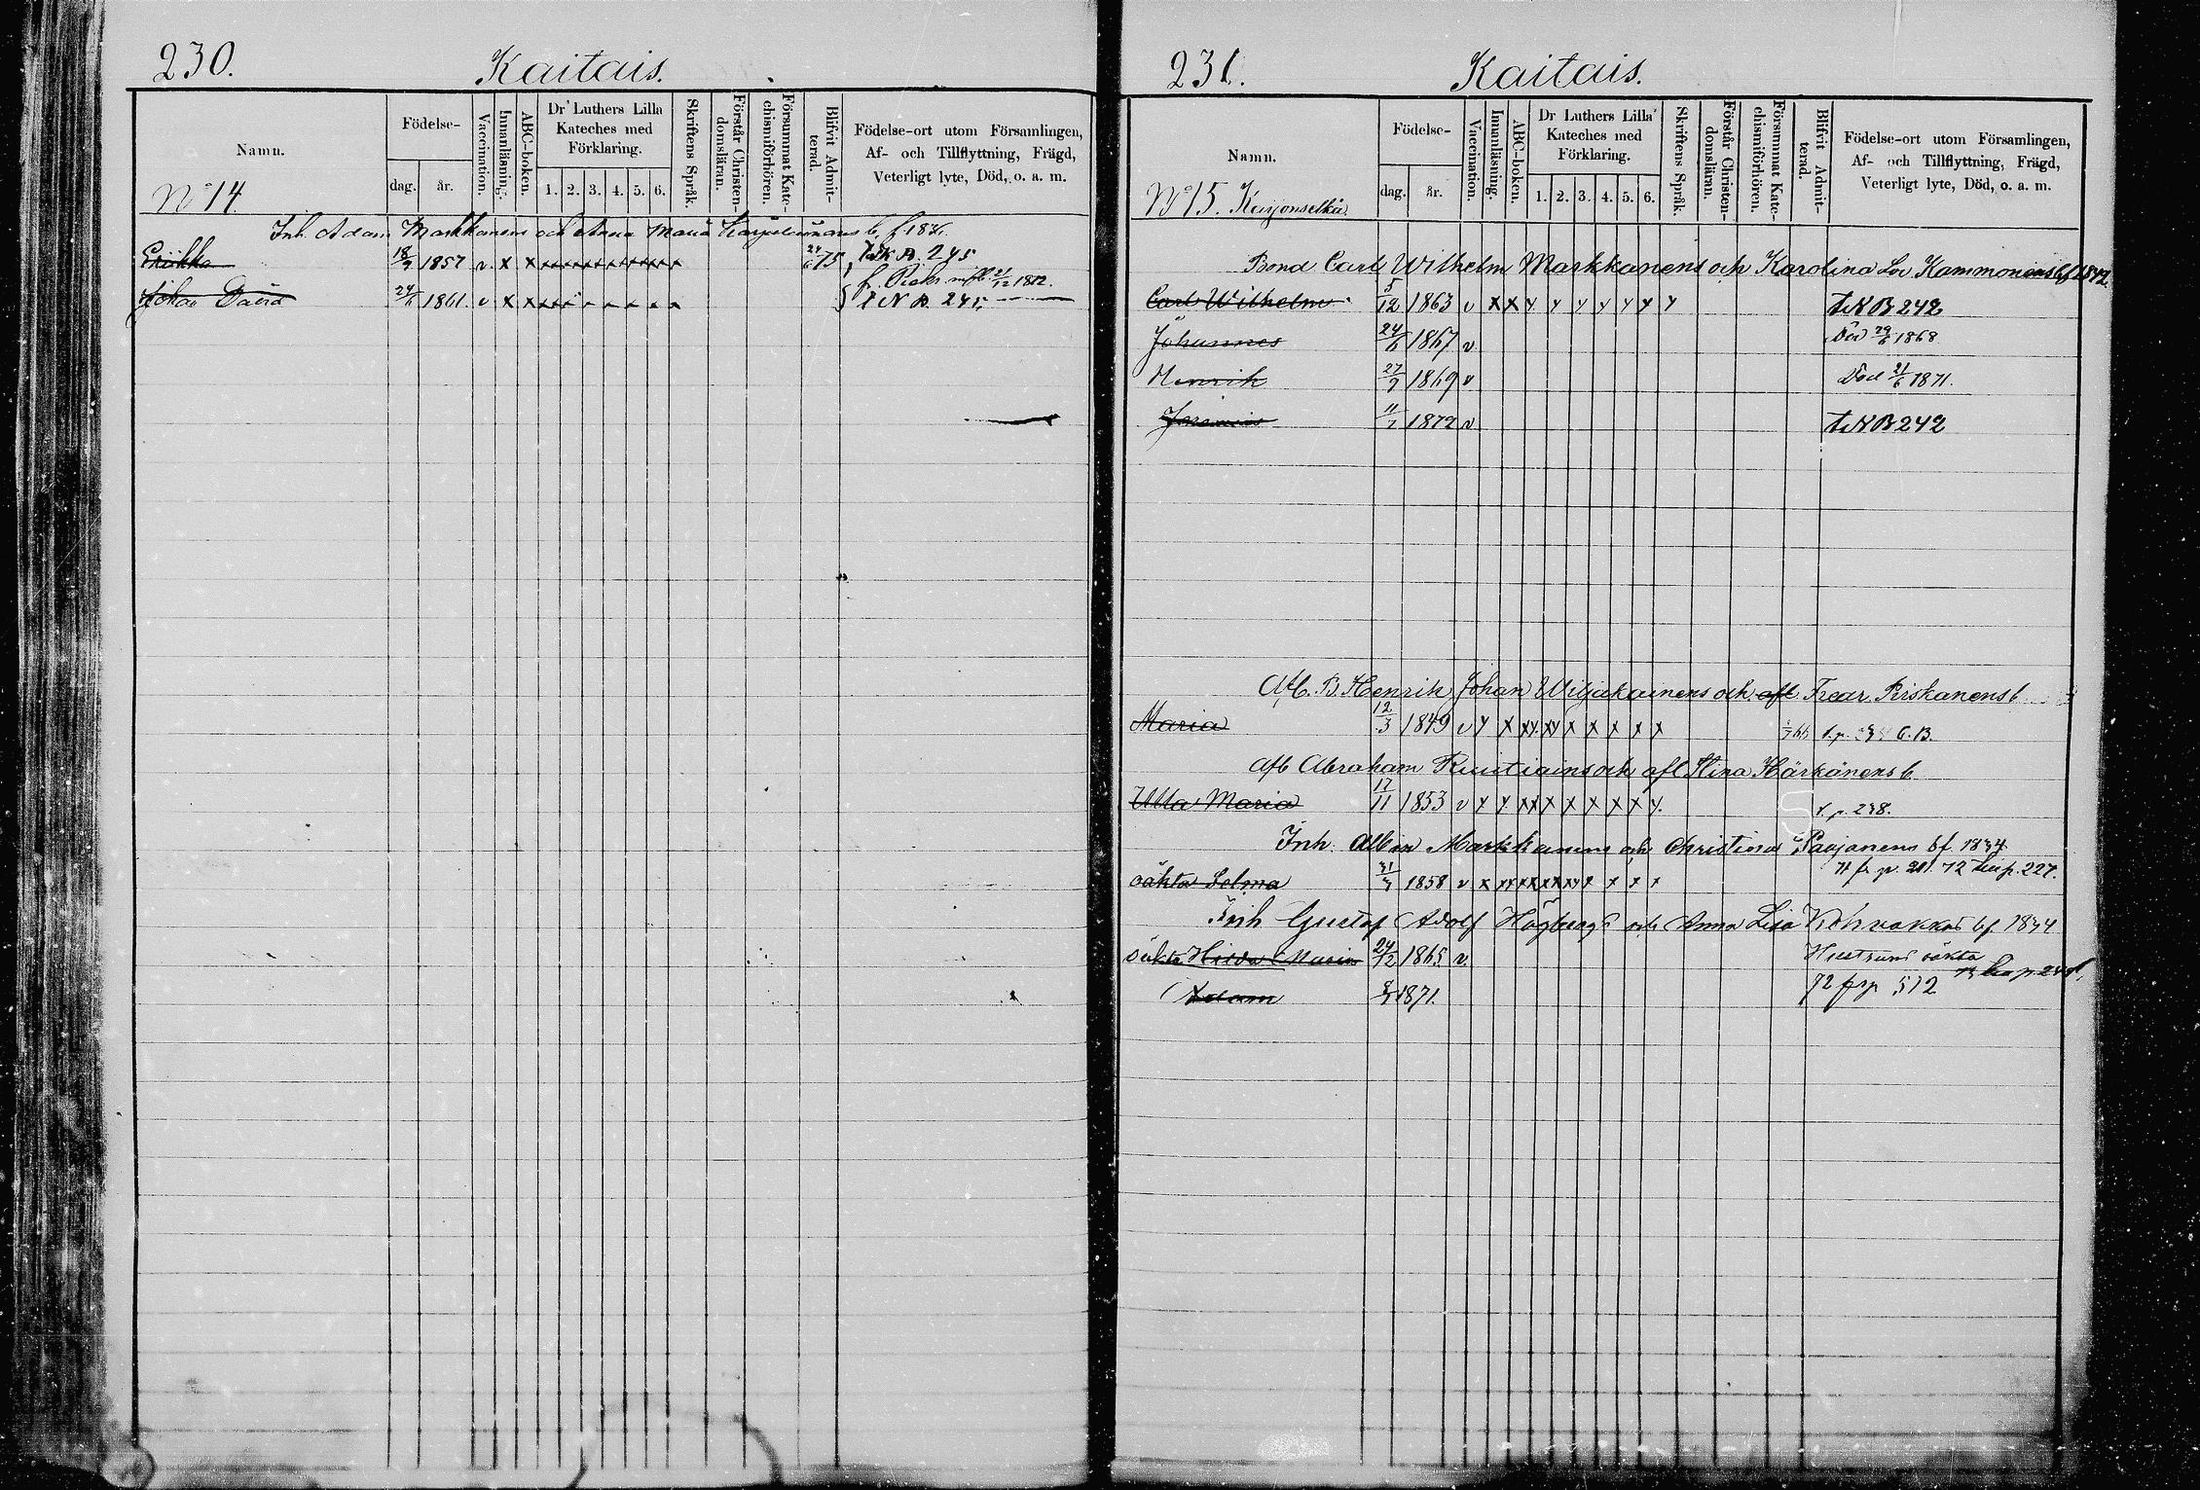 230.
Kaitais.
Namn.
Födelse-
dag.
år.
Vaccination.
Innanläsning.
ABC-boken.
Dr Luthers Lilla
Kateches med
Förklaring.
1. 2. 3. 4. 5. 6.
Skriftens Språk.
Förstår Christen-
domsläran.
Försummat Kate-
chismiförhören.
Blifvit Admit-
terad.
Födelse-ort utom Församlingen,
Af- och Tillflyttning, Frägd,
Veterligt lyte, Död, o. a. m.
No 14.
Inh. Adam Markkanens och Anna Maria b. f 1831.
Erikka 18/9 1857 v x x 24/6 75 N. B. 245
21/12 1872.
Johan David 24/6 1861. v x x N B. 245
231.
Kaitais.
Namn.
Födelse-
dag.
år.
Vaccination.
Innanläsning.
ABC-boken.
Dr Luthers Lilla
Kateches med
Förklaring.
1. 2. 3. 4. 5. 6.
Skriftens Språk.
Förstår Christen-
domsläran.
Försummat Kate-
chismiförhören.
Blifvit Admit-
terad.
Födelse-ort utom Församlingen,
Af- och Tillflyttning, Frägd,
Veterligt lyte, Död, o. a. m.
No 15. Karjonselkä.
Bond Carl Wilhelm Markkanens och Karolina Lov. Kammonens b f 1842.
Carl Wilhelm 5/12 1863 v x x y y y y y y y t. N B 242
Johannes 24/6 1867 v Död 29/6 1868
Henrik 27/9 1869 v Död 21/6 1871.
1872 v t. N B 242
Afl. B. Henrik Johan Wiljakainens och afl Fredr. Piiskanens b
Maria 12/3 1849 v y x xy xy x x x x x
Afl Abraham Ruutiains och afl Stina Härkönens b
Ulla Maria 17/11 1853 v y y xx x x x x x y. t. p. 238.
Inh. Albin Markkanens och Christina Paajanens b f. 1834
oäkta Selma 1858 v x 72 p. 227.
Inh Gustaf Adolf Högbergs och Anna Lisa Kohvakkas b f 1834
oäkta Hilda Maria 24/12 1865 v Hustruns oäkta
Adam 1871. 72 fr p 512